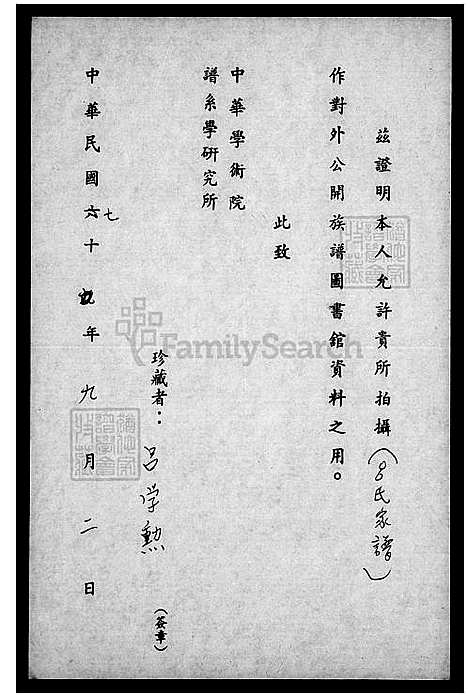 茲證明本人允許貴所拍攝(呂氏家譜)
作對外公開族譜圖書館資料之用。
此致
中華學術院
譜系學研究所
珍藏者：呂学勳
(簽章)
中華民國七十年九月二日
FamilySearch